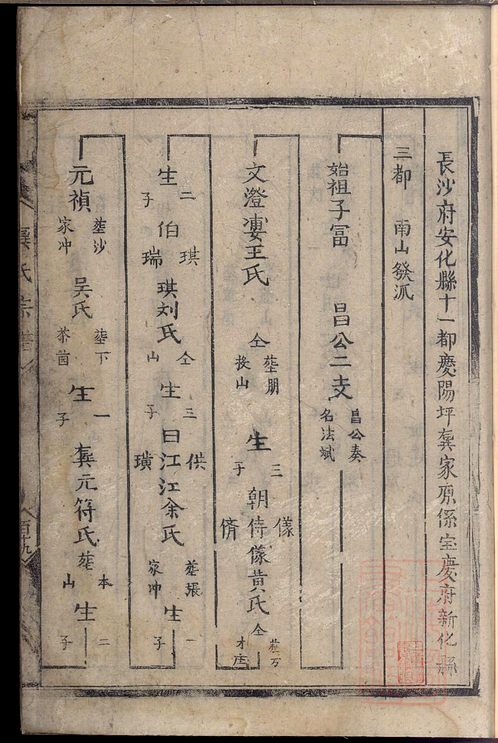 長沙府安化縣十一都慶陽坪龔家原係宝慶府新化縣
三都 南山發派
始祖子冨 昌公二支 昌公奏名法斌
文澄婁王氏 仝塟朋後山 生三子 朝侍儀儕 儀黄氏 仝塟万才庄
生二子 伯琪瑞 琪刘氏 仝山 生三子 曰江供璜 江余氏 塟張家冲 生一子
元禎 塟沙家冲 吴氏 塟下茶凿 生一子 龔元符氏 塟本山 生二子
龔氏宗譜